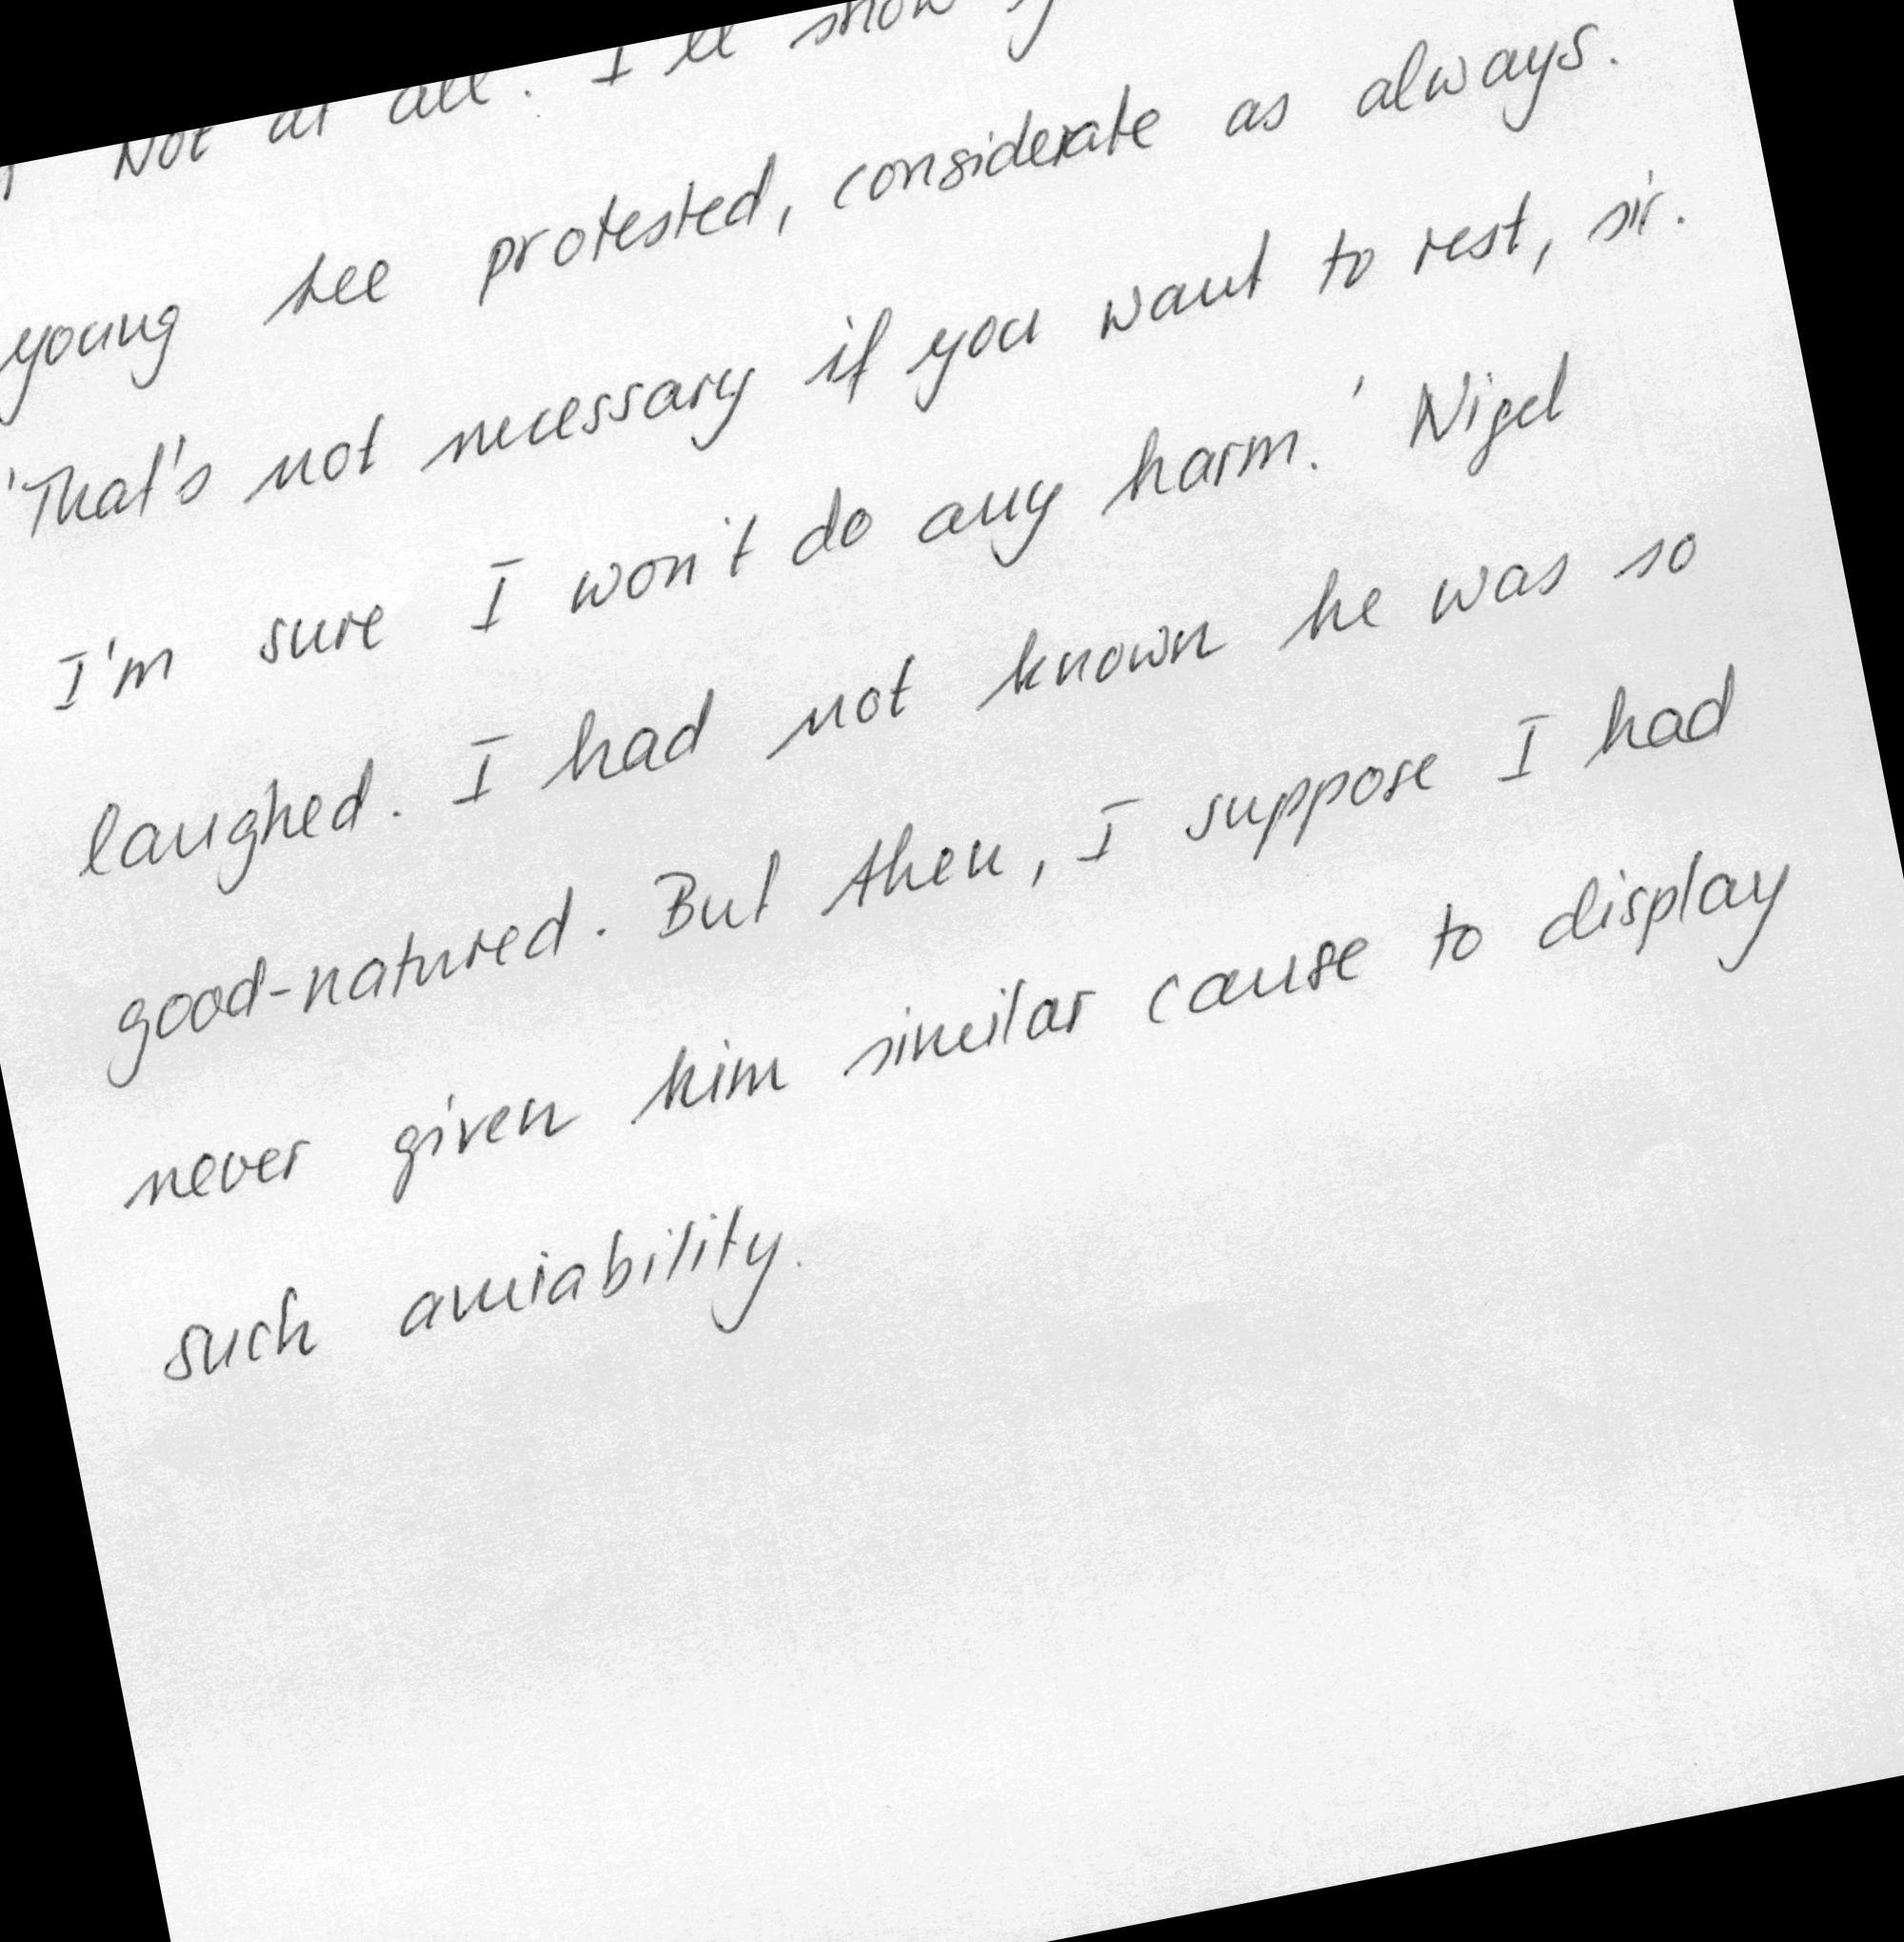 Not at all. I'll show
young Lee protested, considerate as always.
'That's not necessary if you want to rest, sir.
I'm sure I won't do any harm.' Nigel
laughed. I had not known he was so
good-natured. But then, I suppose I had
never given him similar cause to display
such amiability.